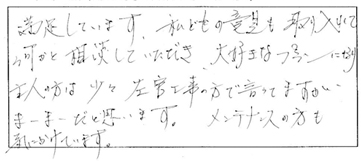 満足しています。私どもの意見も取り入れて
何かと相談していただき、大好きな
主人の方は少々左官工事の方で言ってますがい
まーまーだと思います。メンテナンスの方も
気にかけています。